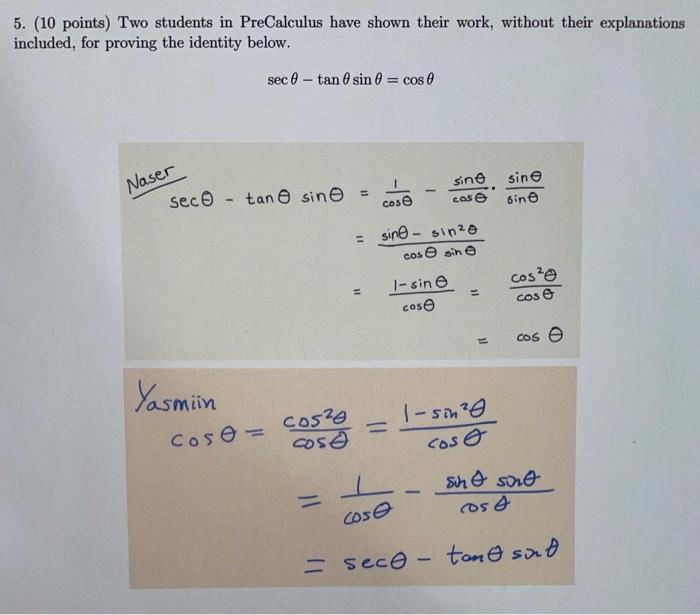 5. (10 points) Two students in PreCalculus have shown their work, without their explanations
included, for proving the identity below.
sec θ − tan θ sin θ = cos θ
Naser
secθ - tanθ sinθ = 1/cosθ - sinθ/cosθ · sinθ/sinθ
= (sinθ - sin²θ)/(cosθ sinθ)
= (1-sinθ)/cosθ = cos²θ/cosθ
= cos θ
Yasmiin
cosθ = cos²θ/cosθ = (1-sin²θ)/cosθ
= 1/cosθ - (sinθ sinθ)/cosθ
= secθ - tanθ sinθ